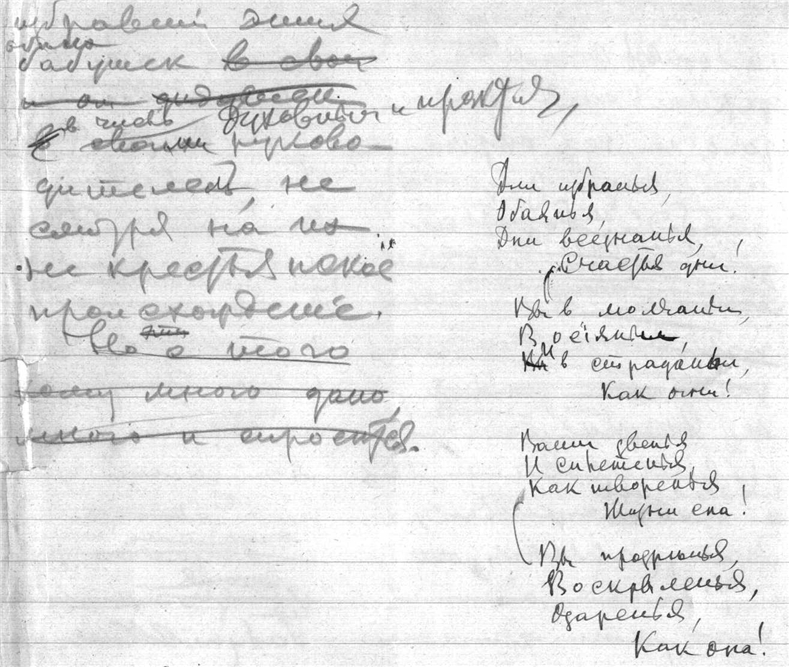 избравший эти
бабушек в свои
и он
в числе духовных и прочия,
своими руково-
дителей, не
смотря на их
не крестьянское
происхождение.
Но с того
кому много дано,
много и спросится.
Дни избранья,
Обаянья,
Дни всезнанья,
Счастья дни!
Вы в молчаньи,
В сияньи,
И в страданьи,
Как огни!
Ваши
И сплетенья,
Как творенья
Жизни сна!
Вы прозренья,
Воскрыленья,
Одаренья,
Как она!